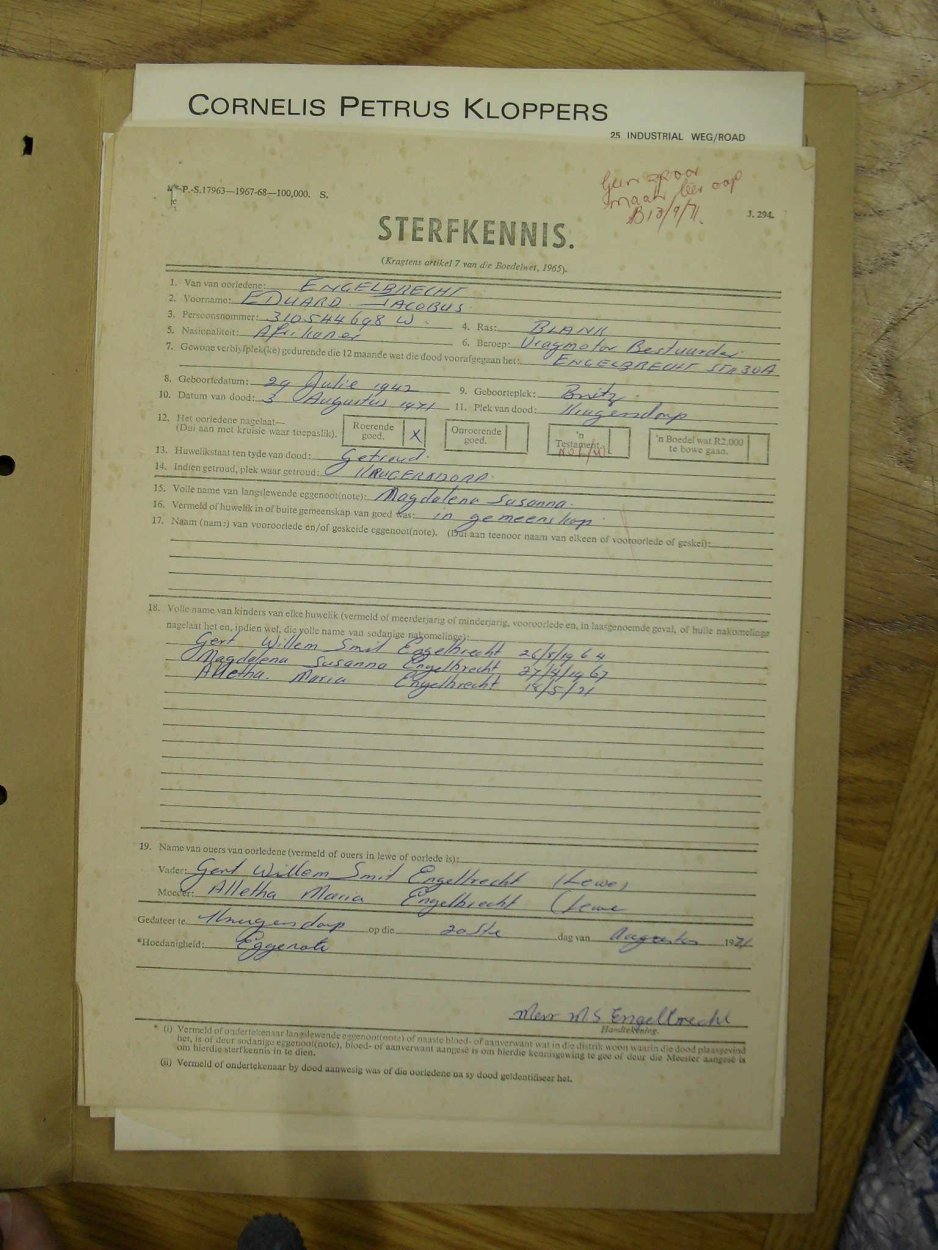 CORNELIS PETRUS KLOPPERS
25 INDUSTRIAL WEG/ROAD
P.-S.17963—1967-68—100,000. S.
Geen spoor
maak leer oop
J. 294.
STERFKENNIS.
(Kragtens artikel 7 van die Boedelwet, 1965).
1. Van van oorledene: ENGELBRECHT
2. Voorname: EDUARD JACOBUS
3. Persoonsnommer: 310544698 W. 4. Ras: BLANK
5. Nasionaliteit: Afrikaner 6. Beroep: Vragmotor Bestuurder
7. Gewone verblyfplek(ke) gedurende die 12 maande wat die dood voorafgegaan het: ENGELBRECHT STR 30A
8. Geboortedatum: 29 Julie 1942 9. Geboorteplek: Britz
10. Datum van dood: 3 Augustus 1971 11. Plek van dood: Krugersdorp
12. Het oorledene nagelaat— (Dui aan met kruisie waar toepaslik). Roerende goed. X Onroerende goed. 'n Testament. 'n Boedel wat R2,000 te bowe gaan.
13. Huwelikstaat ten tyde van dood: Getroud
14. Indien getroud, plek waar getroud: KRUGERSDORP
15. Volle name van langslewende eggenoot(note): Magdalena Susanna
16. Vermeld of huwelik in of buite gemeenskap van goed was: in gemeenskap
17. Naam (name) van vooroorlede en/of geskeide eggenoot(note). (Dui aan teenoor naam van elkeen of vooroorlede of geskei):
18. Volle name van kinders van elke huwelik (vermeld of meerderjarig of minderjarig, vooroorlede en, in laasgenoemde geval, of hulle nakomelinge
nagelaat het en, indien wel, die volle name van sodanige nakomelinge):
Gert Willem Smit Engelbrecht 26/5/1964
Magdalena Susanna Engelbrecht 27/4/1967
Alletha Maria Engelbrecht 18/5/71
19. Name van ouers van oorledene (vermeld of ouers in lewe of oorlede is):
Vader: Gert Willem Smit Engelbrecht (Lewe)
Moeder: Alletha Maria Engelbrecht (Lewe
Gedateer te Krugersdorp op die 20ste dag van Augustus 1971
*Hoedanigheid: Eggenote
Mevr M S Engelbrecht
Handtekening.
* (i) Vermeld of ondertekenaar langslewende eggenoot(note) of naaste bloed- of aanverwant wat in die distrik woon waarin die dood plaasgevind
het, is of deur sodanige eggenoot(note), bloed- of aanverwant aangesê is om hierdie kennisgewing te gee of deur die Meester aangesê is
om hierdie sterfkennis in te dien.
(ii) Vermeld of ondertekenaar by dood aanwesig was of die oorledene na sy dood geïdentifiseer het.